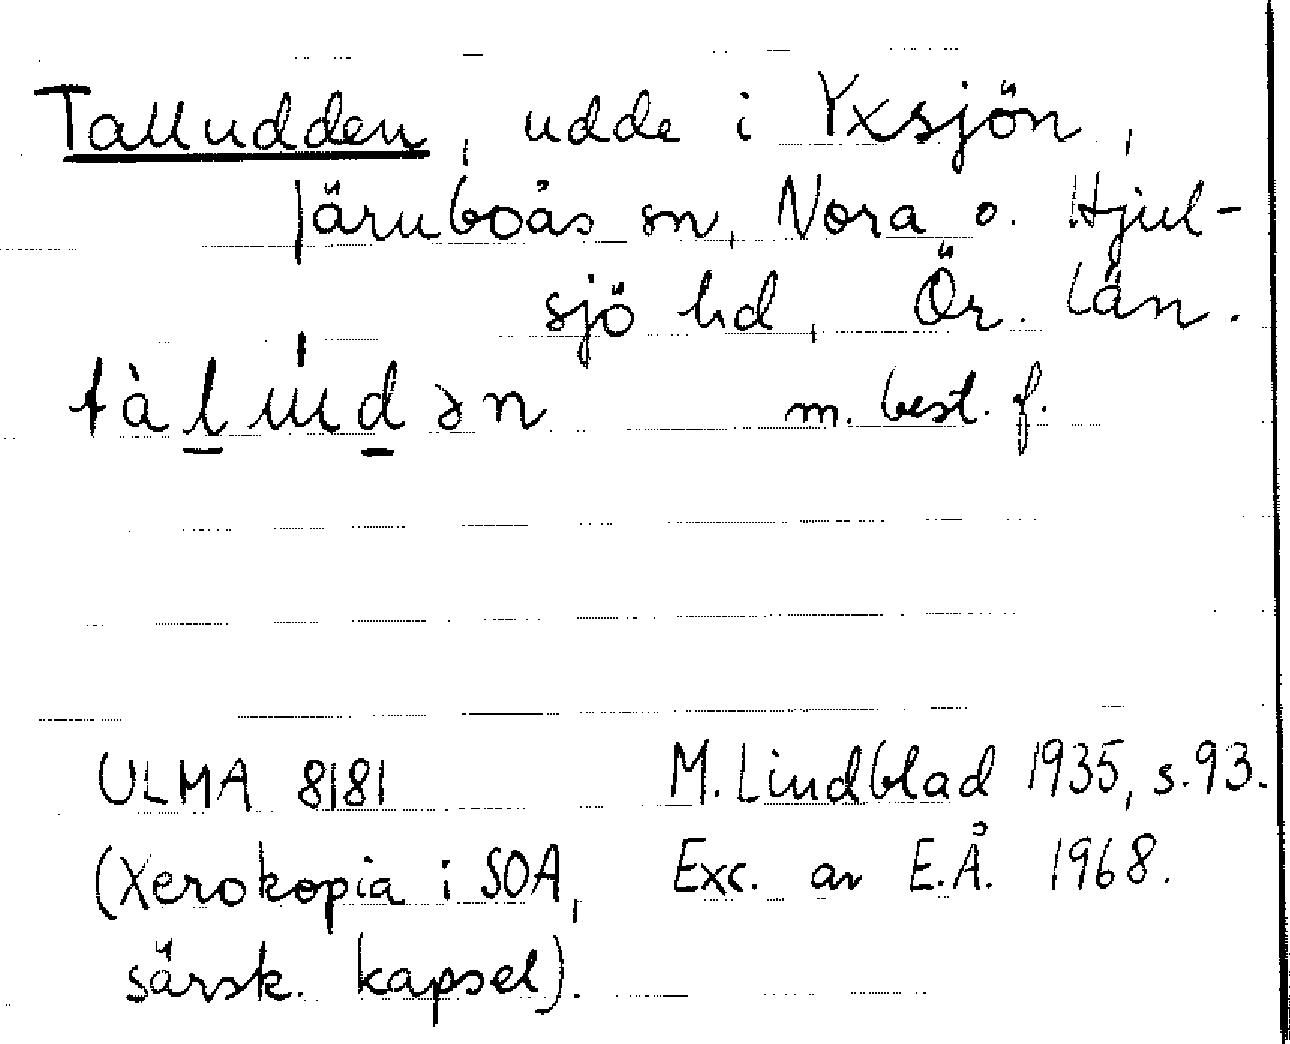 Talludden, udde i Yxsjön,
Järnboås sn, Nora o. Hjul-
sjö hd, Ör. län.
tàl̠úd̠ən m. best. f.
ULMA 8181 M. Lindblad 1935, s. 93.
(Xerokopia i SOA, Exc. av E.Å. 1968.
särsk. kapsel).